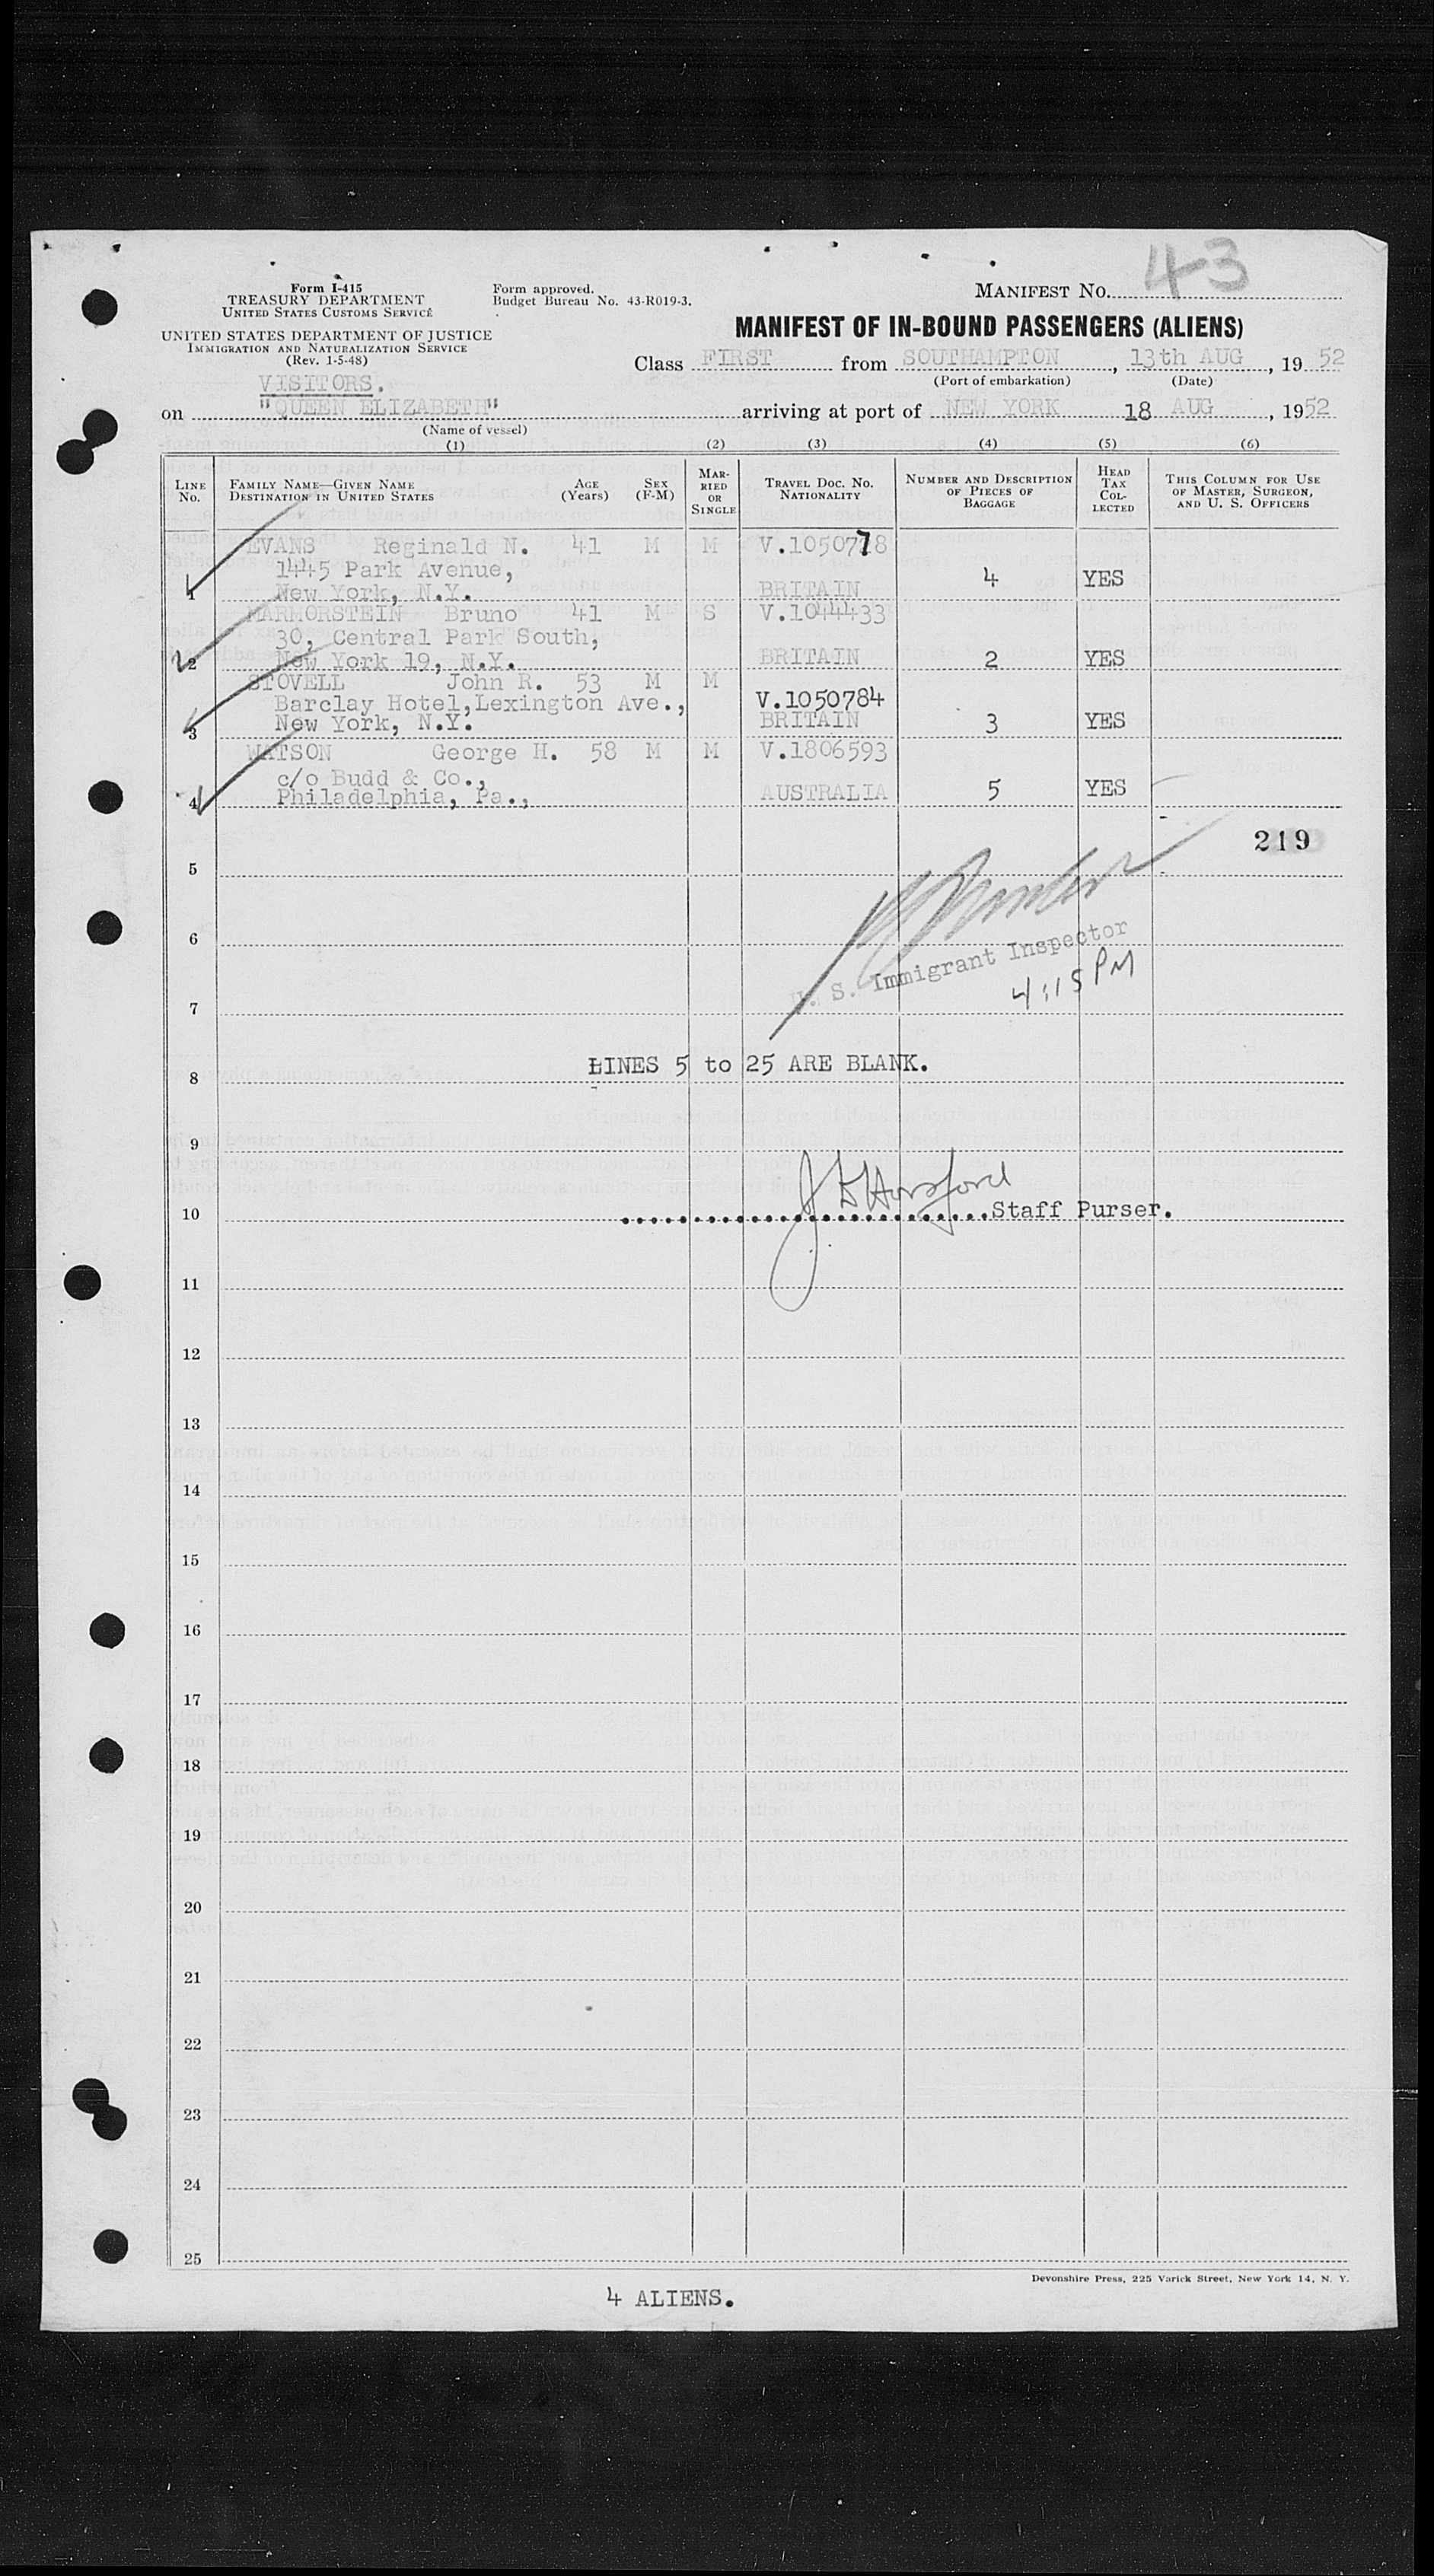 43
Form I-415
TREASURY DEPARTMENT
UNITED STATES CUSTOMS SERVICE
UNITED STATES DEPARTMENT OF JUSTICE
IMMIGRATION AND NATURALIZATION SERVICE
(Rev. 1-5-48)
Form approved.
Budget Bureau No. 43-R019-3.
MANIFEST NO.
MANIFEST OF IN-BOUND PASSENGERS (ALIENS)
Class FIRST from SOUTHAMPTON, 13th AUG, 19 52
(Port of embarkation) (Date)
VISITORS.
on "QUEEN ELIZABETH" arriving at port of NEW YORK 18 AUG, 1952
(Name of vessel)
(1) (2) (3) (4) (5) (6)
LINE NO. FAMILY NAME—GIVEN NAME DESTINATION IN UNITED STATES AGE (Years) SEX (F-M) MARRIED OR SINGLE TRAVEL DOC. NO. NATIONALITY NUMBER AND DESCRIPTION OF PIECES OF BAGGAGE HEAD TAX COLLECTED THIS COLUMN FOR USE OF MASTER, SURGEON, AND U. S. OFFICERS
EVANS Reginald N. 41 M M V.1050778
1445 Park Avenue,
1 New York, N.Y. BRITAIN 4 YES
MARMORSTEIN Bruno 41 M S V.1044433
30, Central Park South,
2 New York 19, N.Y. BRITAIN 2 YES
STOVELL John R. 53 M M
Barclay Hotel, Lexington Ave., V.1050784
3 New York, N.Y. BRITAIN 3 YES
WATSON George H. 58 M M V.1806593
c/o Budd & Co.,
4 Philadelphia, Pa., AUSTRALIA 5 YES
219
5
6
U. S. Immigrant Inspector
4:15 PM
7
LINES 5 to 25 ARE BLANK.
8
9
10 Staff Purser.
11
12
13
14
15
16
17
18
19
20
21
22
23
24
25
Devonshire Press, 225 Varick Street, New York 14, N. Y.
4 ALIENS.